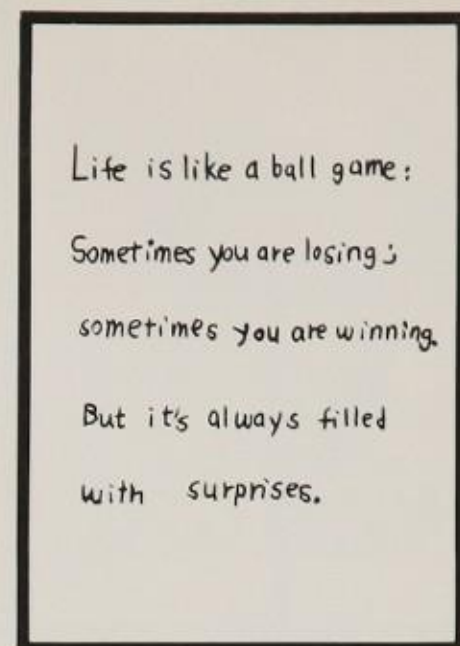 Life is like a ball game:
Sometimes you are losing;
sometimes you are winning.
But it's always filled
with surprises.